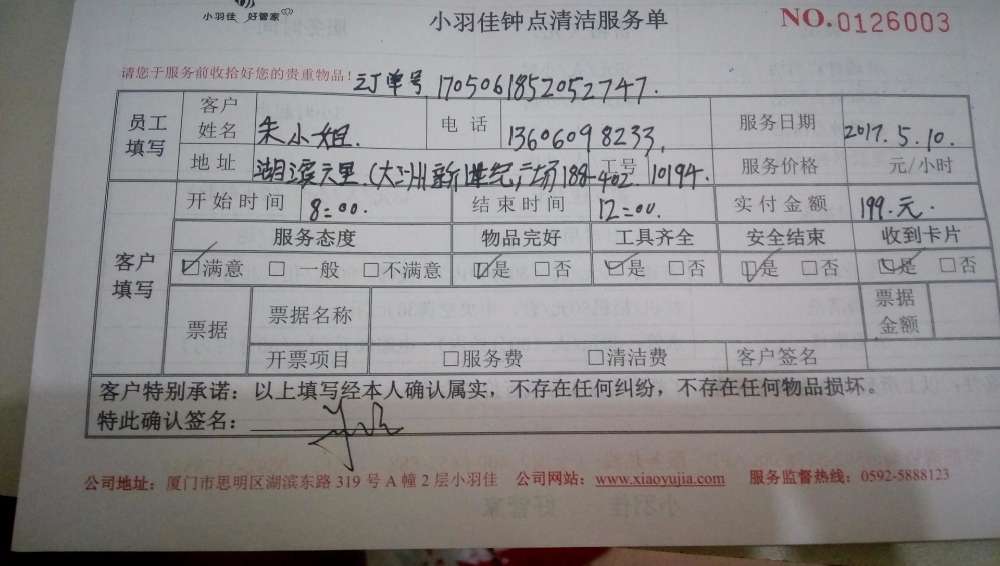 小羽佳 好管家
小羽佳钟点清洁服务单
NO.0126003
请您于服务前收拾好您的贵重物品！
订单号 1705061852052747.
员工填写 客户姓名 朱小姐. 电话 13606098233. 服务日期 2017.5.10.
地址 湖滨六里.(大洲新世纪广场188-402. 工号 10194. 服务价格 元/小时
客户填写 开始时间 8:00. 结束时间 12:00. 实付金额 199.元.
服务态度 物品完好 工具齐全 安全结束 收到卡片
☑满意 □ 一般 □不满意 ☑是 □否 ☑是 □否 ☑是 □否 ☑是 □否
票据 票据名称 票据金额
开票项目 □服务费 □清洁费 客户签名
客户特别承诺：以上填写经本人确认属实，不存在任何纠纷，不存在任何物品损坏。
特此确认签名：
公司地址：厦门市思明区湖滨东路 319 号 A 幢 2 层小羽佳 公司网站：www.xiaoyujia.com 服务监督热线：0592-5888123